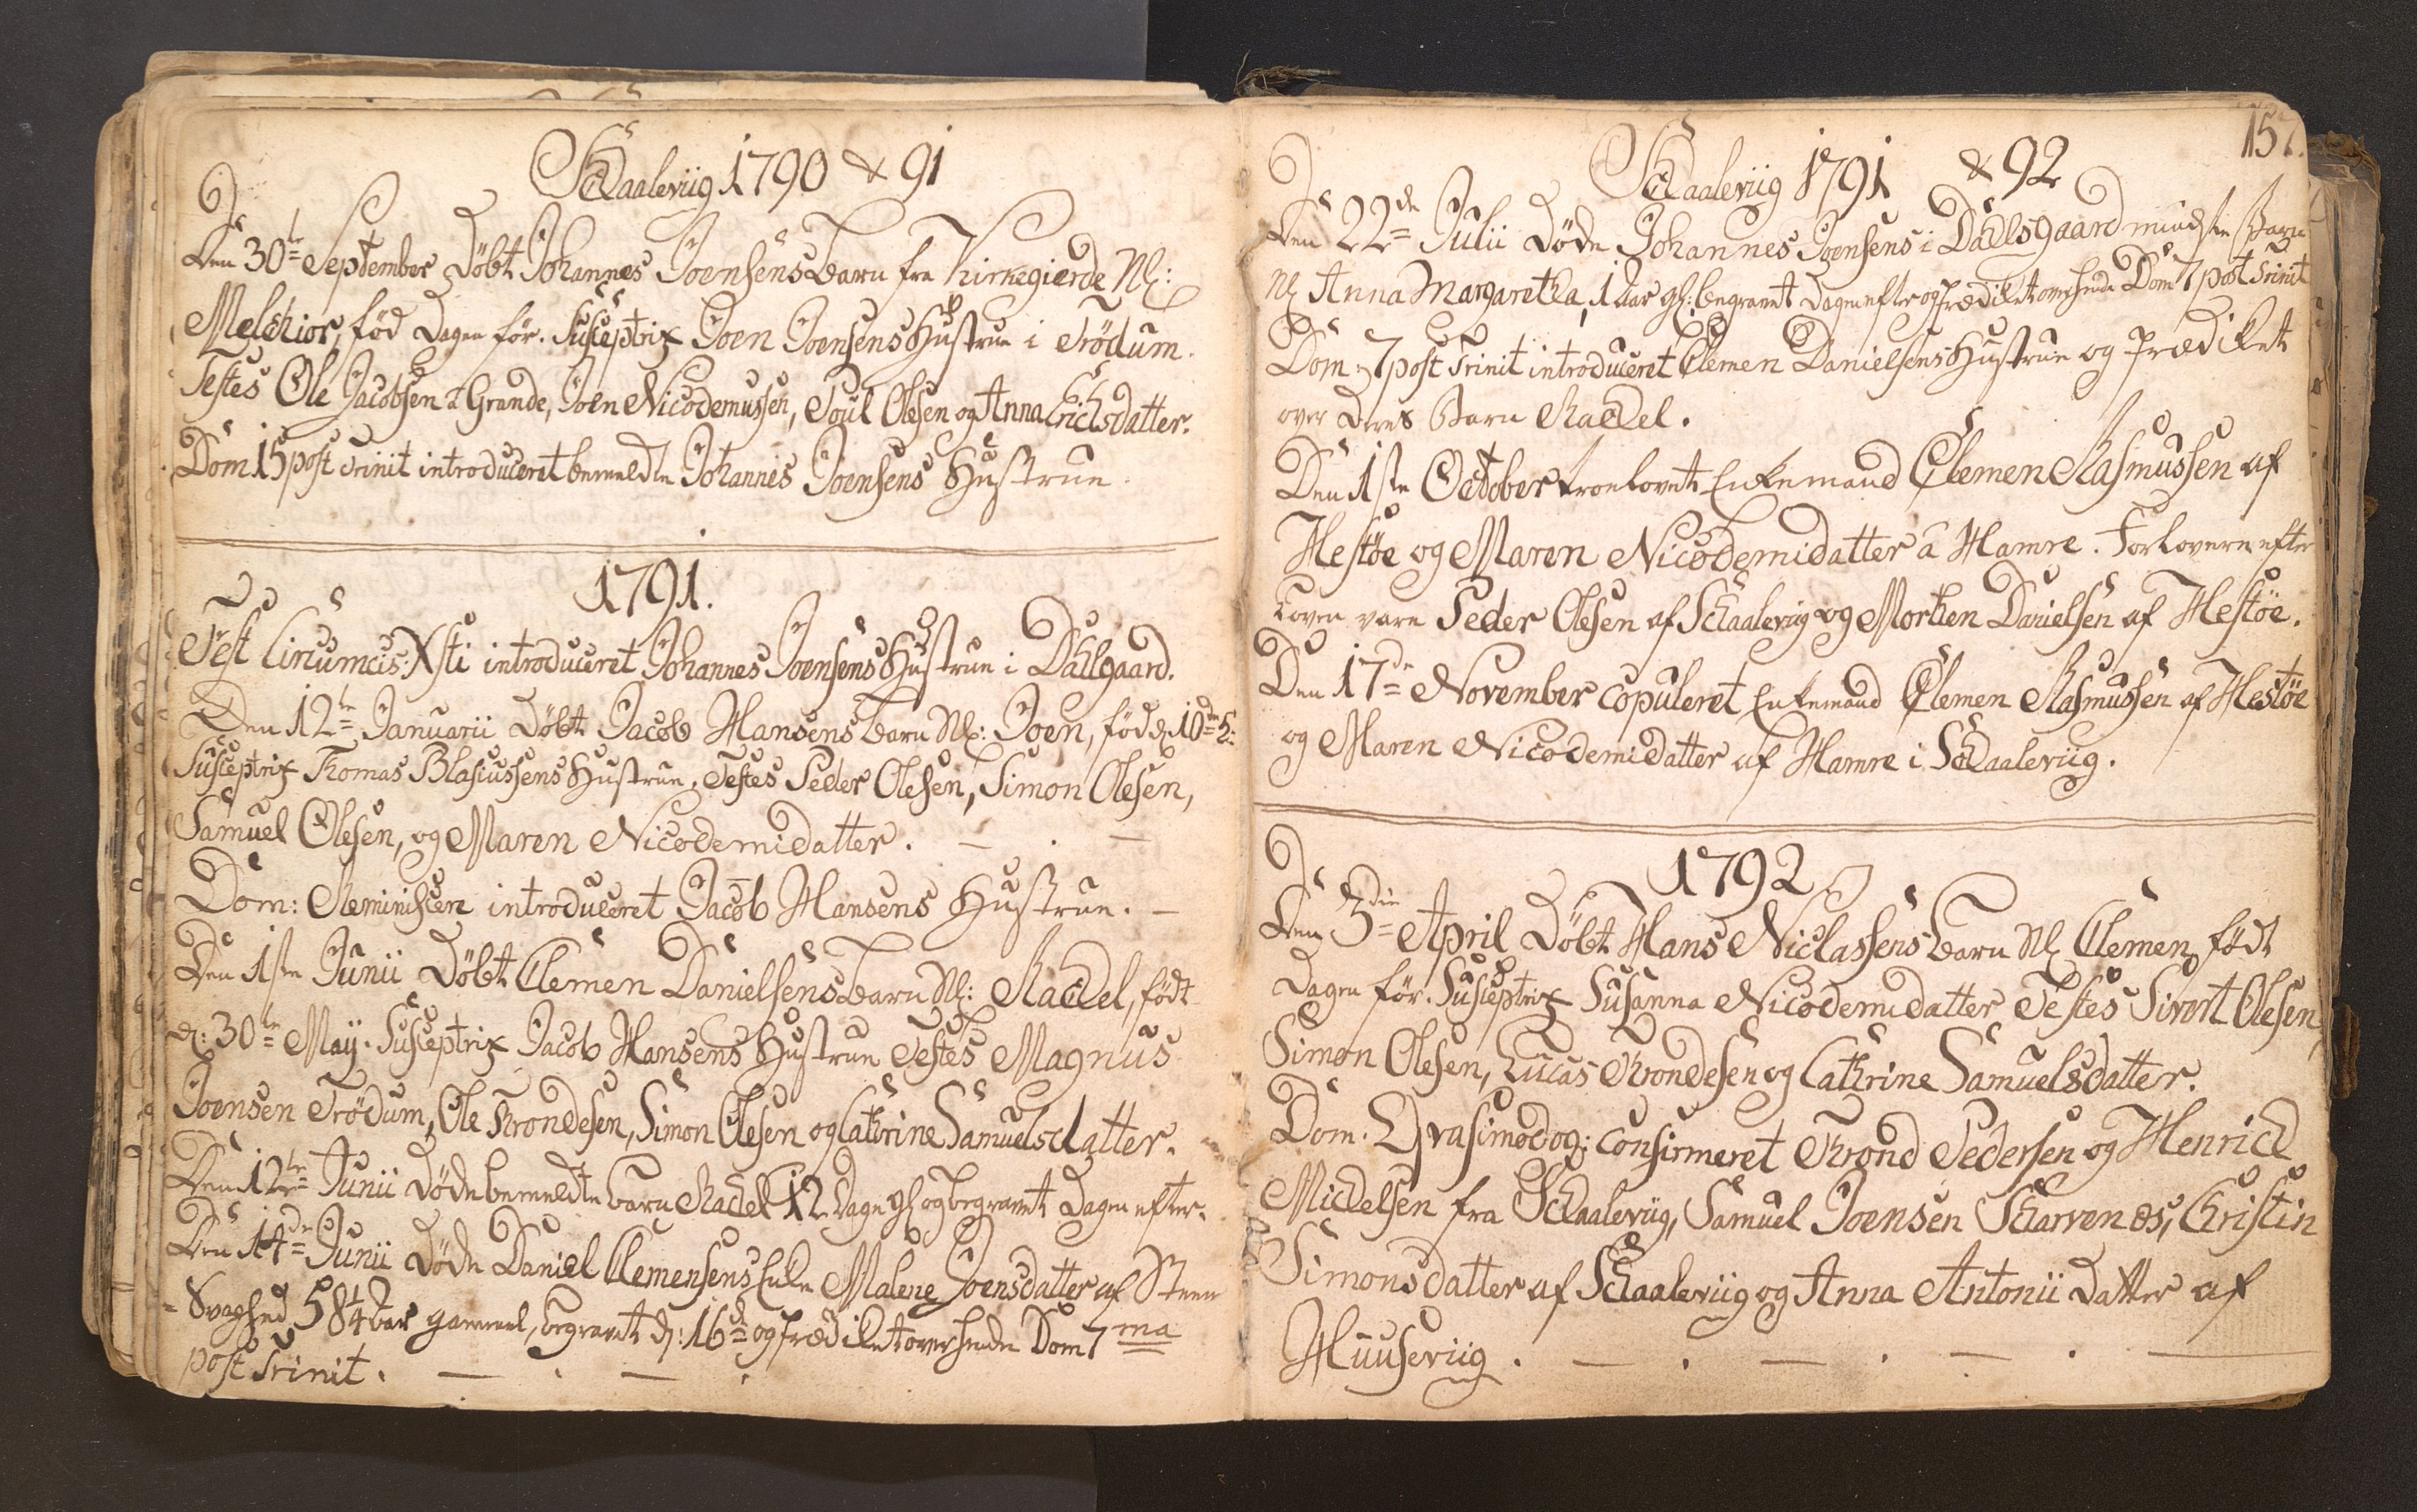 Schaaleviig 1790 & 91
Den 30te September Döbt Johannes Joensens barn fra Kirkegierde Nl:
Melchior, föd dagen för. Susceptrix Joen Joensens Hustrue i Trödum.
Testes Ole Jacobsen â Grande, Joen Nicodemussen, Poul Olesen og Anna Erichsdatter.
Dom 15 post Trinit introduceret bemeldte Johannis Joensens Hustrue.
1791.
Fest Circumcis: Xsti introduceret Johannes Joensens Hustrue i Dahlsgaard.
Den 12te Januarii Döbt Jacob Hansens barn Nl: Joen, föd d. 10de
Susceptrix Thomas Blasiussens Hustrue, Testes Peder Olesen, Simon Olesen,
Samuel Olesen, og Maren Nicodemidatter.
Dom: Reminiscere introduceret Jacob Hansens Hustrue.
Den 1ste Junii Döbt Clemen Danielsens barn Nl: Rachel, födt
d: 30te Maij. Susceptrix Jacob Hansens Hustrue Testes Magnus
Joensen Trödum, Ole Throndesen, Simon Olesen og Cathrine Samuelsdatter.
Den 12te Junii Döde bemeldte barn Rachel 12 Dage gl og begravet Dagen efter.
Den 14de Junii döde Daniel Clemensens Enke Malene Joensdatter af Steen
Svaghed 84 aar gammel, begravet d: 16de og Prædiket over hende Dom 7ma
post Trinit.
157.
Schaaleviig 1791 & 92
Den 22de Julii Döde Johannes Joensens i Dahlsgaard mindste Barn
Nl Anna Margaretha, 1 Aar gl: begravet Dagen efter og Prædiket over hende Dom 7 post Trinit
Dom: 7 post Trinit introduceret Clemen Danielsens Hustrue og Prædiket
over deres Barn Rachel.
Den 1ste October troelovet Enkemand Clemen Rasmussen af
Hestöe og Maren Nicodemidatter â Hamre. Forlovere efter
Loven vare Peder Olesen af Schaalevig og Morten Danielsen af Hestöe.
Den 17de November copuleret Enkemand Clemen Rasmussen af Hestöe
og Maren Nicodemidatter af Hamre i Schaaleviig.
1792
Den 3die April Döbt Hans Niclassens barn Nl Clemen, födt
Dagen för. Susceptrix Susanna Nicodemidatter Testes Sivert Olesen,
Simon Olesen, Lucas Throndesen og Cathrine Samuelsdatter.
Dom. Qvasimodog: confirmeret Thrond Pedersen og Henrich
Michelsen fra Schaaleviig, Samuel Joensen Scharvenes, Christin
Simonsdatter af Schaaleviig og Anna Antonii Datter af
Huuseviig.